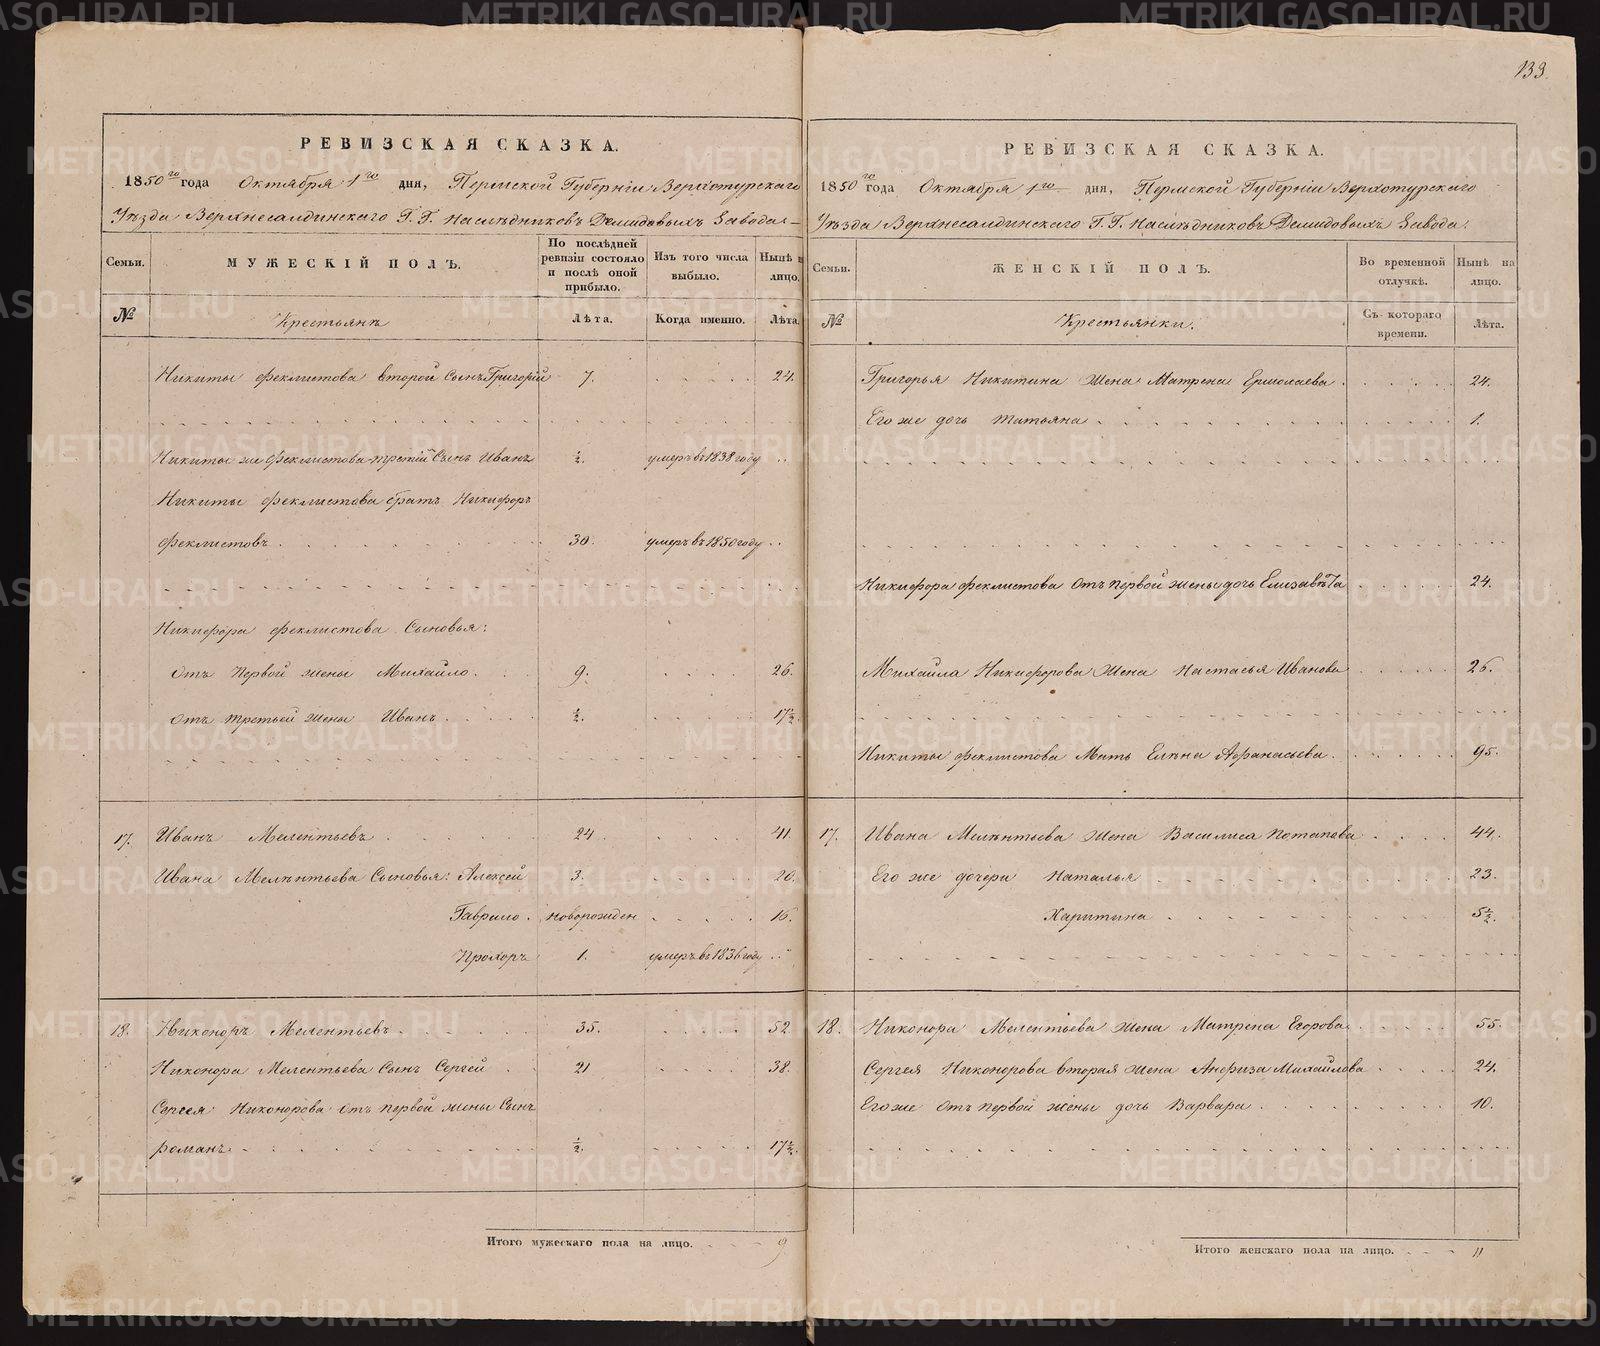 133.
РЕВИЗСКАЯ СКАЗКА.
1850го года Октября 1го дня, Пермской Губерніи Верхотурскаго
Уѣзда Верхнесалдинскаго Г.Г. Наслѣдниковъ Демидовыхъ Завода
Семьи.
МУЖЕСКІЙ ПОЛЪ.
По послѣдней ревизіи состояло и послѣ оной прибыло.
Изъ того числа выбыло.
Нынѣ н лицо.
№
Крестьянъ
Лѣта.
Когда именно.
Лѣта.
Никиты Феклистова второй сынъ Григорій 7. 24.
Никиты же Феклистова третій Сынъ Иванъ ½. умеръ въ 1838 году
Никиты Феклистова братъ Никифоръ
Феклистовъ 30. умеръ въ 1850 году
Никифора Феклистова Сыновья:
отъ первой жены Михайло. 9. 26.
отъ третьей жены Иванъ ½. 17½.
17. Иванъ Мелентьевъ 24 41.
Ивана Мелентьева Сыновья: Алексей 3. 20.
Гаврило. новорожден 16.
Прохоръ 1. умеръ въ 1836 году
18. Никоноръ Мелентьевъ 35. 52.
Никонора Мелентьева Сынъ Сергей 21 38.
Сергея Никонорова отъ первой жены Сынъ
Романъ ½. 17½.
Итого мужескаго пола на лицо. 9
РЕВИЗСКАЯ СКАЗКА.
1850го года Октября 1го дня, Пермской Губерніи Верхотурскаго
Уѣзда Верхнесалдинскаго Г.Г. Наслѣдниковъ Демидовыхъ Завода.
Семьи.
ЖЕНСКІЙ ПОЛЪ.
Во временной отлучкѣ.
Нынѣ на лицо.
№
Крестьянки.
Съ котораго времени.
Лѣта.
Григорья Никитина жена Матрена Ермолаева 24.
Его же дочь Татьяна 1.
Никифора Феклистова отъ первой жены дочь Елизавѣта 24.
Михайла Никифорова жена Настасья Иванова 26.
Никиты Феклистова Мать Елѣна Афанасьева 95.
17. Ивана Мелентьева жена Василиса Потапова 44.
Его же дочери Наталья 23.
Харитина 5½.
18. Никонора Мелентьева жена Матрена Егорова 55.
Сергея Никонорова вторая жена Анфиза Михайлова 24.
Его же отъ первой жены дочь Варвара 10.
Итого женскаго пола на лицо. 11
METRIKI.GASO-URAL.RU